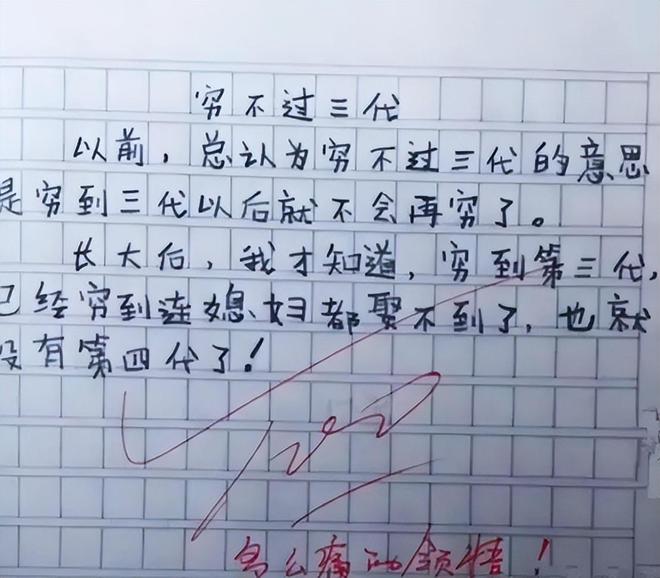 穷不过三代
以前，总认为穷不过三代的意思
是穷到三代以后就不会再穷了。
长大后，我才知道，穷到第三代，
已经穷到连媳妇都娶不到了，也就
没有第四代了！
100
多么痛的领悟！